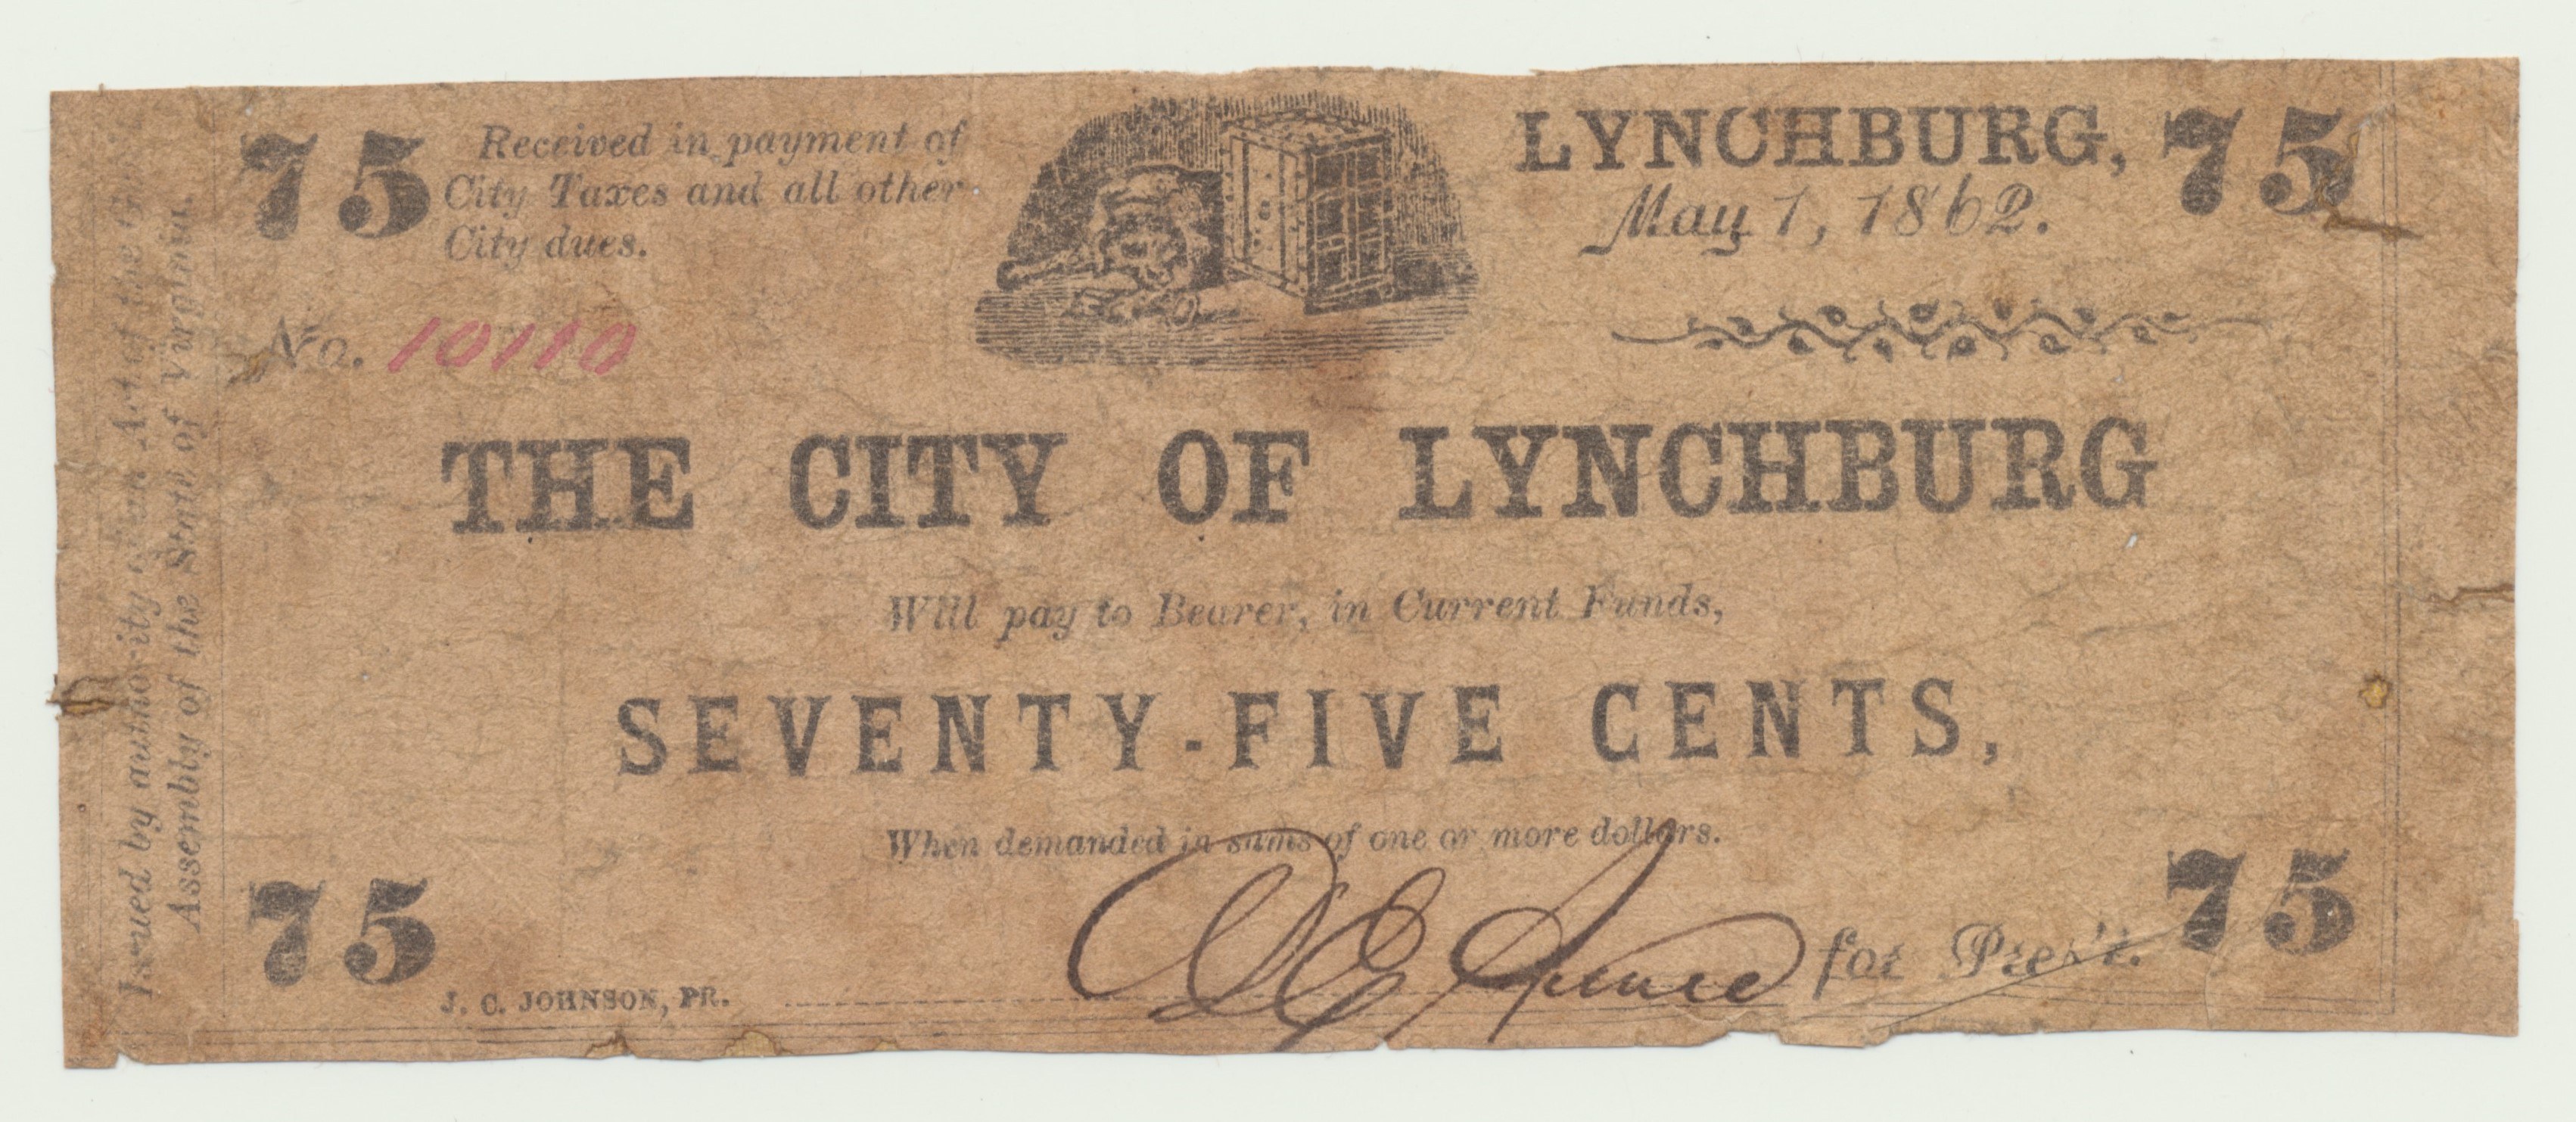 75 Received in payment of
City Taxes and all other
City dues.
LYNCHBURG, 75
May 1, 1862.
No. 10110
THE CITY OF LYNCHBURG
Will pay to Bearer, in Current Funds,
SEVENTY-FIVE CENTS,
When demanded in sums of one or more dollars.
75 J. C. JOHNSON, PR. for Pres't. 75
Issued by authority of an Act of the
Assembly of the State of Virginia.